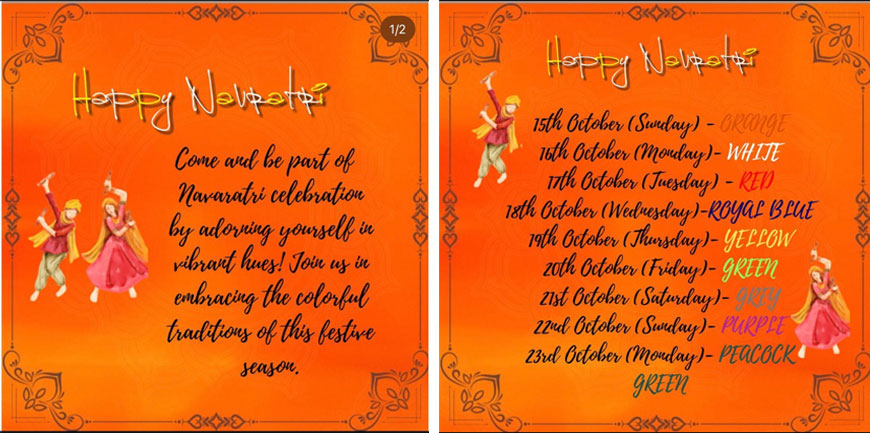 1/2
Happy Navratri
Come and be part of
Navaratri celebration
by adorning yourself in
vibrant hues! Join us in
embracing the colorful
traditions of this festive
season.
Happy Navratri
15th October (Sunday) - ORANGE
16th October (Monday)- WHITE
17th October (Tuesday) - RED
18th October (Wednesday)-ROYAL BLUE
19th October (Thursday)- YELLOW
20th October (Friday)- GREEN
21st October (Saturday)- GREY
22nd October (Sunday)- PURPLE
23rd October (Monday)- PEACOCK
GREEN